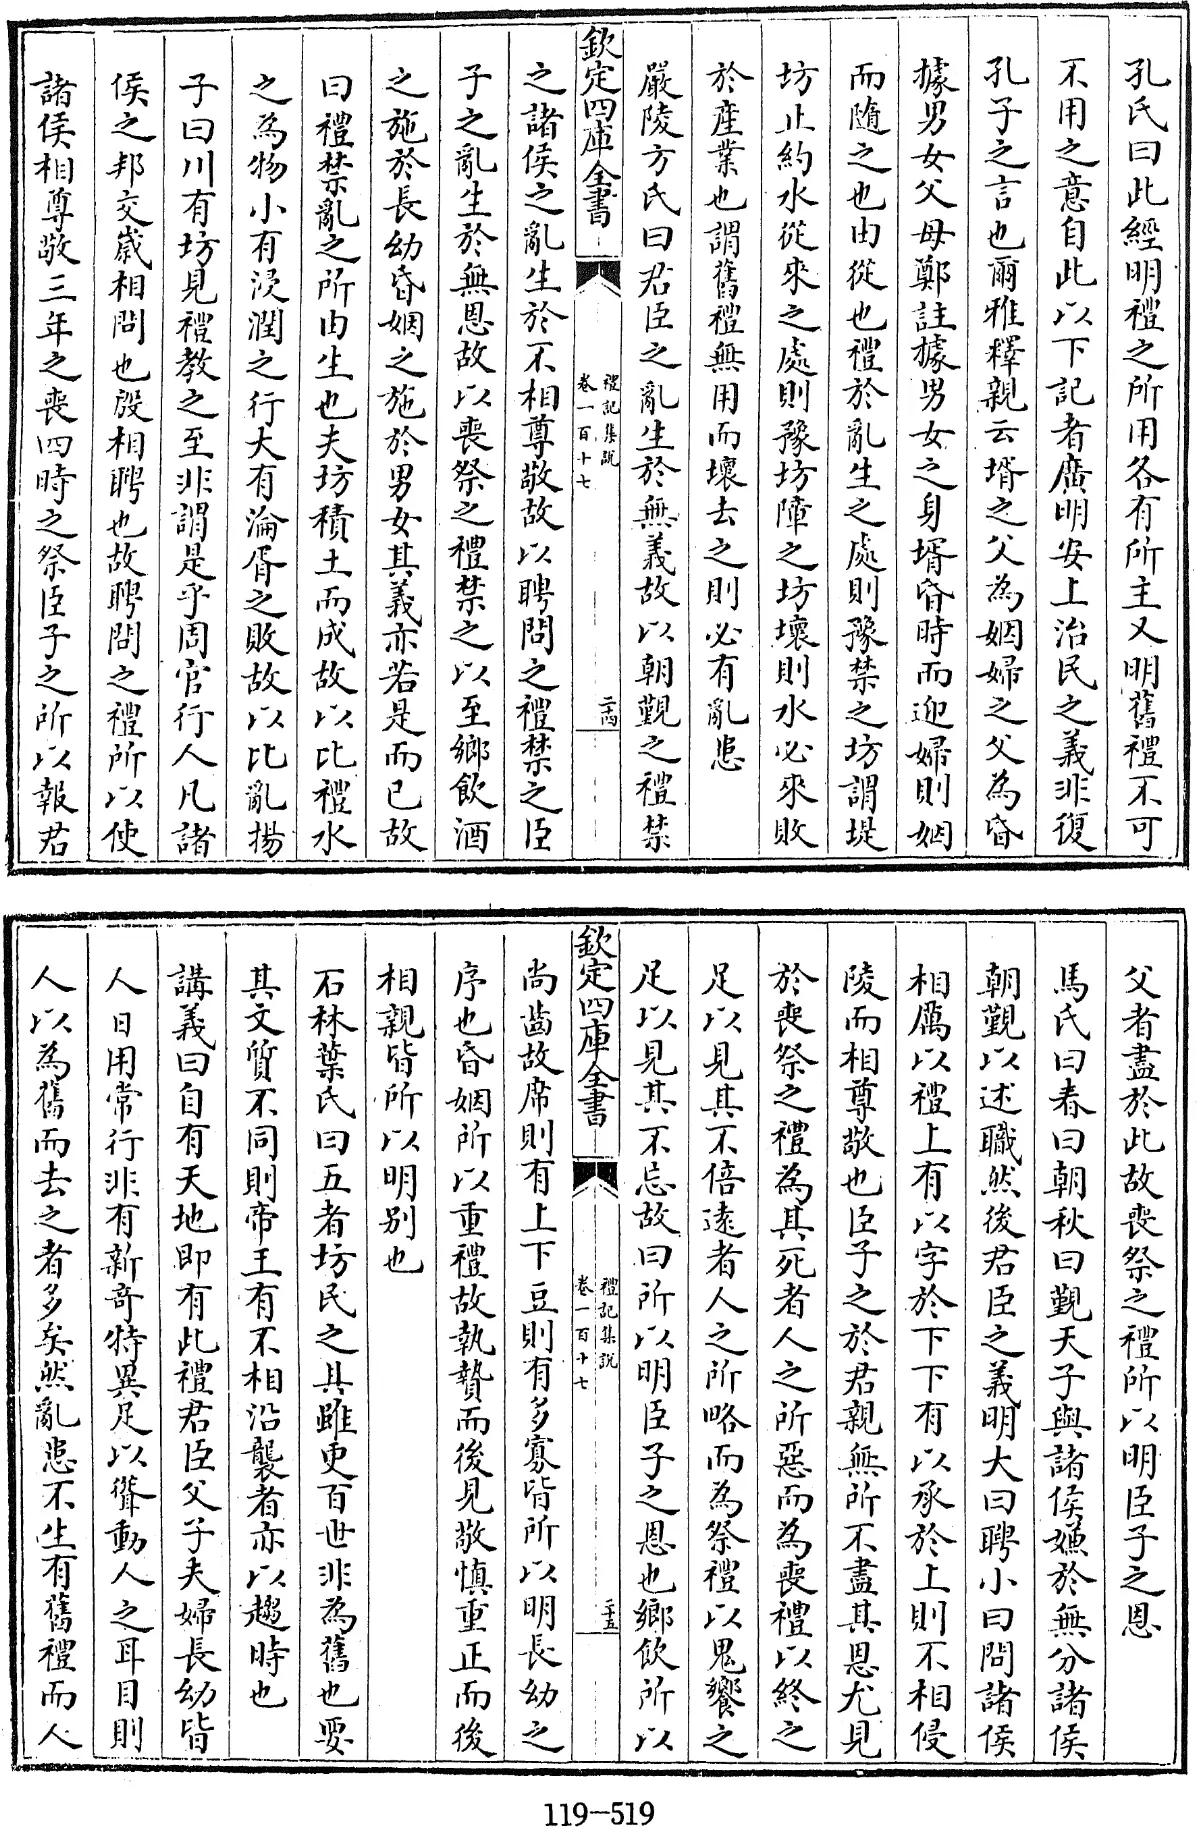 孔氏曰此經明禮之所用各有所主又明舊禮不可
不用之意自此以下記者廣明安上治民之義非復
孔子之言也爾雅釋親云壻之父為姻婦之父為昏
據男女父母鄭註據男女之身壻昏時而迎婦則姻
而隨之也由從也禮於亂生之處則豫禁之坊謂堤
坊止約水從來之處則豫坊障之坊壞則水必來敗
於產業也謂舊禮無用而壞去之則必有亂患
嚴陵方氏曰君臣之亂生於無義故以朝覲之禮禁
欽定四庫全書
禮記集說
卷一百十七
二十四
之諸侯之亂生於不相尊敬故以聘問之禮禁之臣
子之亂生於無恩故以喪祭之禮禁之以至鄉飲酒
之施於長幼昏姻之施於男女其義亦若是而已故
曰禮禁亂之所由生也夫坊積土而成故以比禮水
之為物小有浸潤之行大有淪胥之敗故以比亂揚
子曰川有坊見禮教之至非謂是乎周官行人凡諸
侯之邦交歲相問也殷相聘也故聘問之禮所以使
諸侯相尊敬三年之喪四時之祭臣子之所以報君
父者盡於此故喪祭之禮所以明臣子之恩
馬氏曰春曰朝秋曰覲天子與諸侯嫌於無分諸侯
朝覲以述職然後君臣之義明大曰聘小曰問諸侯
相厲以禮上有以字於下下有以承於上則不相侵
陵而相尊敬也臣子之於君親無所不盡其恩尤見
於喪祭之禮為其死者人之所惡而為喪禮以終之
足以見其不倍遠者人之所略而為祭禮以鬼饗之
足以見其不忘故曰所以明臣子之恩也鄉飲所以
欽定四庫全書
禮記集說
卷一百十七
二十五
尚齒故席則有上下豆則有多寡皆所以明長幼之
序也昏姻所以重禮故執贄而後見敬慎重正而後
相親皆所以明別也
石林葉氏曰五者坊民之具雖更百世非為舊也要
其文質不同則帝王有不相沿襲者亦以趨時也
講義曰自有天地即有此禮君臣父子夫婦長幼皆
人日用常行非有新奇特異足以聳動人之耳目則
人以為舊而去之者多矣然亂患不生有舊禮而人
119-519